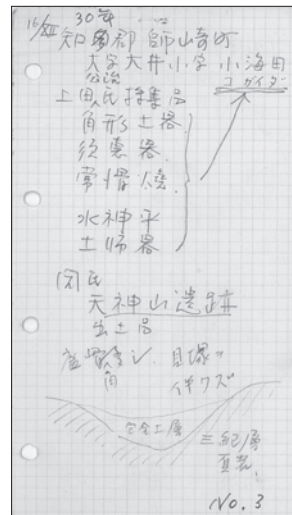 16/XII 30年
知多郡 師崎町
大字大井小字 小海田
コガイダ
上田氏採集品
角形土器
須恵器
常滑焼
水神平
土師器
同氏
天神山遺跡
出土品
貝塚ハ
伴ワズ
角
包含土層
三紀層
頁岩
No. 3